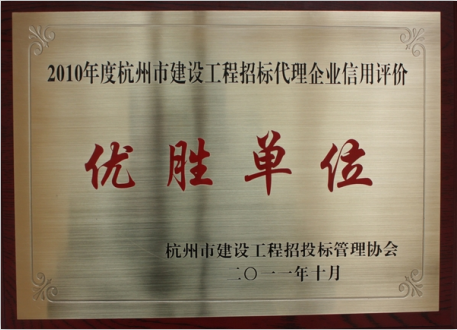 2010年度杭州市建设工程招标代理企业信用评价
优胜单位
杭州市建设工程招投标管理协会
二〇一一年十月